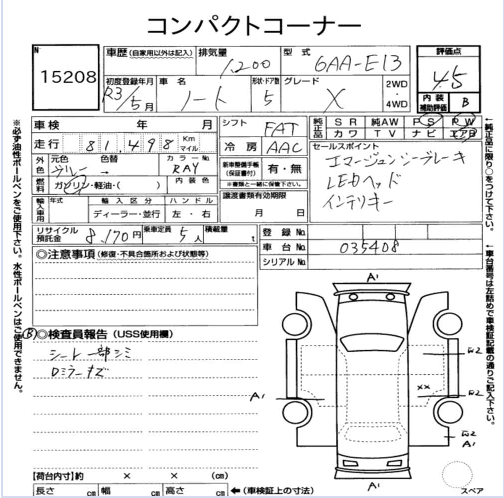 コンパクトコーナー
N 15208
車歴 (自家用以外は記入) 排気量 1200 型式 6AA-E13 評価点 4.5
初度登録年月 R3/5月 車名 ノート 形状・ドア数 5 グレード X 2WD・4WD 内装補助評価 B
車検 年 月 シフト FAT 純正品 SR 純AW PS PW
走行 81,498 Km マイル 冷房 AAC カワ TV ナビ エアB
外色 元色 グレー 色替 → カラーNo RAY 新車整備手帳(保証書付) 有・無 セールスポイント
※書類と一緒に保管下さい。 エマージェンシーブレーキ
燃料 ガソリン・軽油・( ) 内装色 譲渡書類有効期限 LEDヘッド
輸入車用 年式 輸入区分 ハンドル 月 日 インテリキー
ディーラー・並行 左・右
リサイクル預託金 8,170円 乗車定員 5人 積載量 t 登録No.
車台No. 035408
シリアルNo.
◎注意事項 (修復・不具合箇所および状態等)
Ⓑ ◎検査員報告 (USS使用欄)
シート一部シミ
Dミラーキズ
A1
A1
XX
A1
A1
【荷台内寸】約 × × (cm)
長さ cm 幅 cm 高さ cm ←(車検証上の寸法)
スペア
※必ず油性ボールペンをご使用下さい。水性ボールペンはご使用できません。
↑純正品に限り○をつけて下さい。
←車台番号は左詰めで車検証記載の通りご記入下さい。